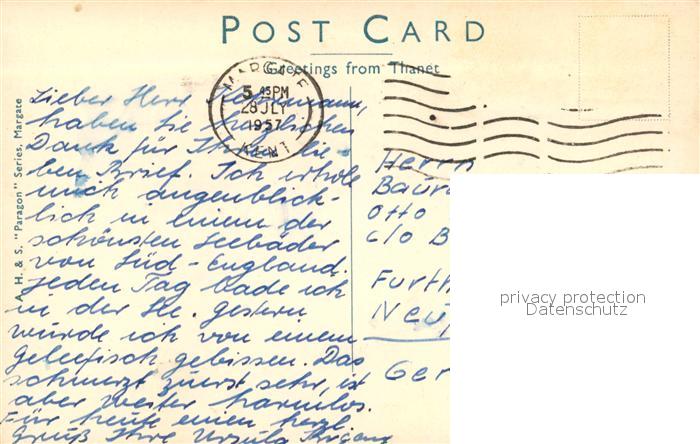 POST CARD
Greetings from Thanet
MARGATE
5 45 PM
28 JLY
1957
KENT
A. H. & S. "Paragon" Series, Margate
Lieber Herr
haben Sie herzlichen
Dank für Ihren lie-
ben Brief. Ich erhole
mich augenblick-
lich in einem der
schönsten Seebäder
von Süd-England.
Jeden Tag bade ich
in der See. Gestern
wurde ich von einem
Geleefisch gebissen. Das
schmerzt zuerst sehr, ist
aber weiter harmlos.
Für heute einen herzl.
Gruß Ihre Ursula
Herrn
Baur
Otto
c/o B
Furth
Neu
Ger
privacy protection
Datenschutz